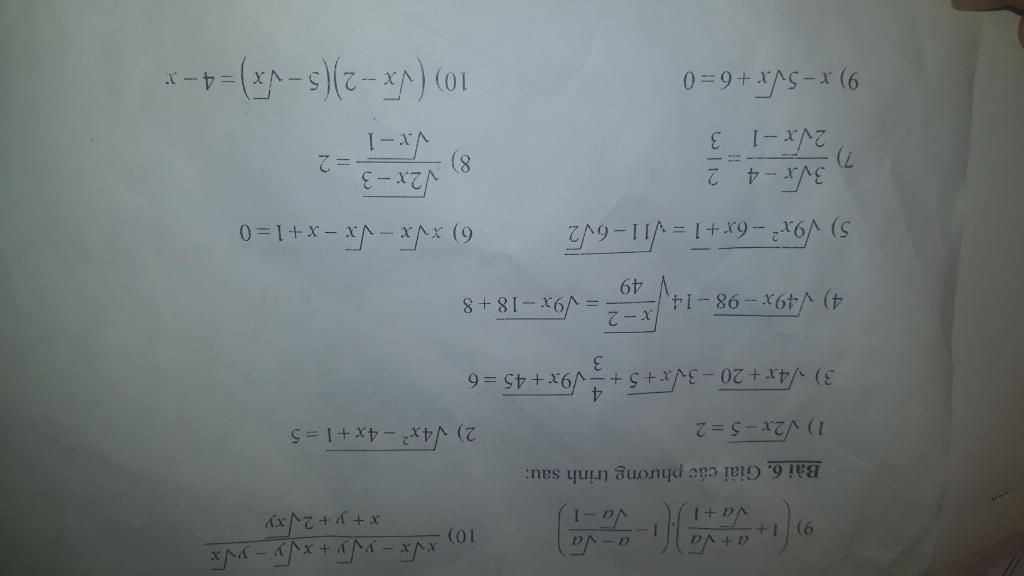 9) (1 + (a + √a)/(√a + 1)).(1 − (a − √a)/(√a − 1))
10) (x√x − y√y + x√y − y√x)/(x + y + 2√xy)
Bài 6. Giải các phương trình sau:
1) √(2x − 5) = 2
2) √(4x² − 4x + 1) = 5
3) √(4x + 20) − 3√(x + 5) + 4/3 √(9x + 45) = 6
4) √(49x − 98) − 14√((x − 2)/49) = √(9x − 18) + 8
5) √(9x² − 6x + 1) = √(11 − 6√2)
6) x√x − √x − x + 1 = 0
7) (3√x − 4)/(2√x − 1) = 2/3
8) √(2x − 3)/√(x − 1) = 2
9) x − 5√x + 6 = 0
10) (√x − 2)(5 − √x) = 4 − x